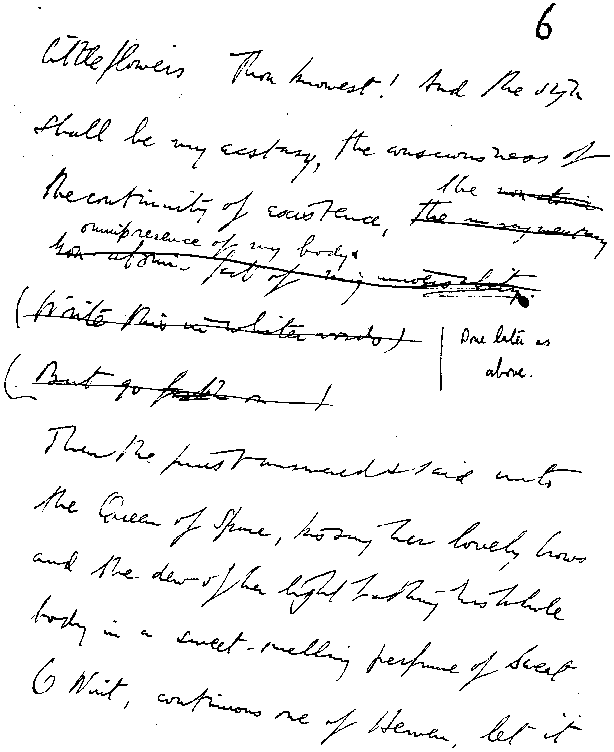 6
little flowers Thou knowest! And the sign
shall be my ecstasy, the consciousness of
the continuity of existence, the non-atomic
the unfragmentary
omnipresence of my body.
non-atomic fact of my universality.
(Write this in whiter words)
Done later as
above.
(But go forth on)
Then the priest answered & said unto
the Queen of Space, kissing her lovely brows
and the dew of her light bathing his whole
body in a sweet-smelling perfume of sweat
O Nuit, continuous one of Heaven, let it